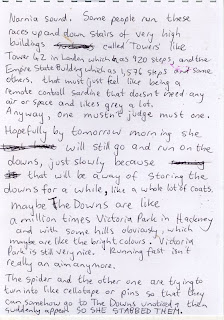 Narnia sound. Some people run these
races up and down stairs of very high
buildings called Towers like
Tower 42 in London which has 920 steps, and the
Empire State Building which has 1,576 steps and some
others, that must just feel like being a
remote contoll sardine that doesn't need any
air or space and likes grey a lot.
Anyway, one mustn't judge must one.
Hopefully by tomorrow morning she
will still go and run on the
downs, just slowly because
that will be a way of storing the
downs for a while, like a whole lot of coats.
maybe The Downs are like
a million times Victoria Park in Hackney
and with some hills obviously, which
maybe are like the bright colours. Victoria
Park is still very nice. Running fast isn't
really an aim anymore.
The spider and the other one are trying to
turn into like cellotape or pins so that they
can somehow go to The Downs unnoticed & then
suddenly appear SO SHE STABBED THEM.